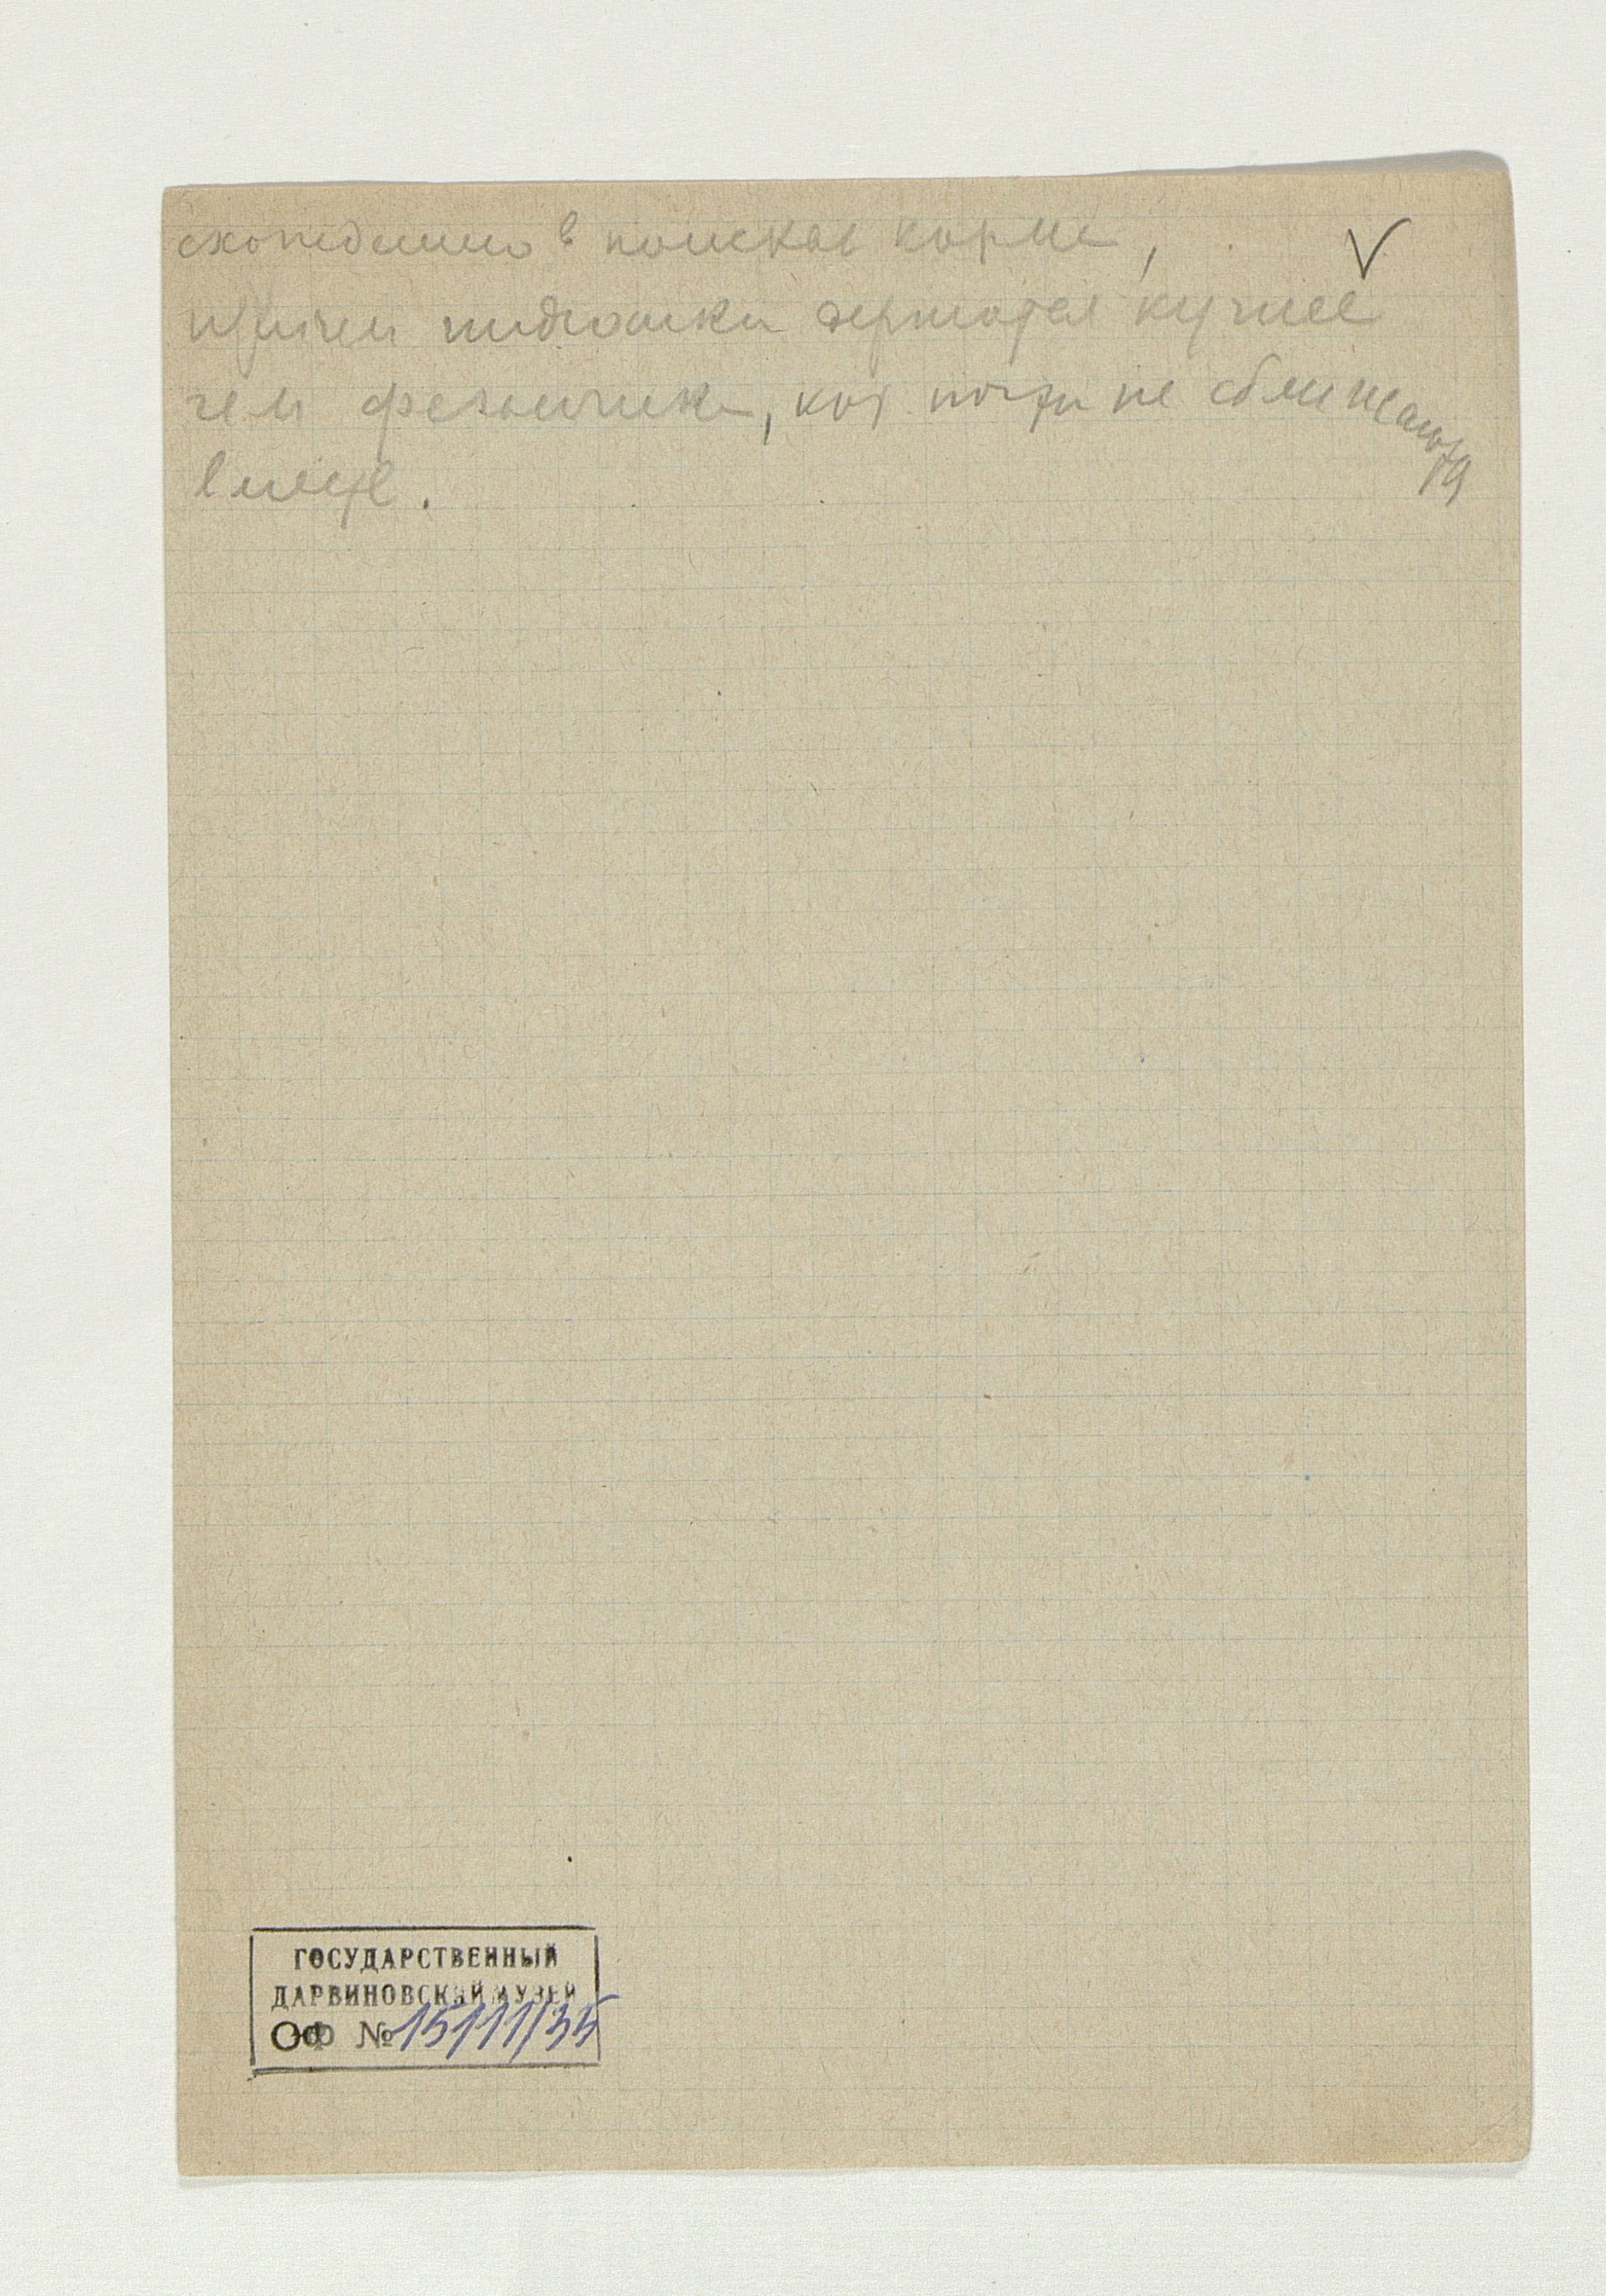 в поисках корма,
причем индюшки держатся кучнее
чем фазанчики, кот почти не сближаются
вместе.
ГОСУДАРСТВЕННЫЙ
ДАРВИНОВСКИЙ МУЗЕЙ
ОФ № 15111/35